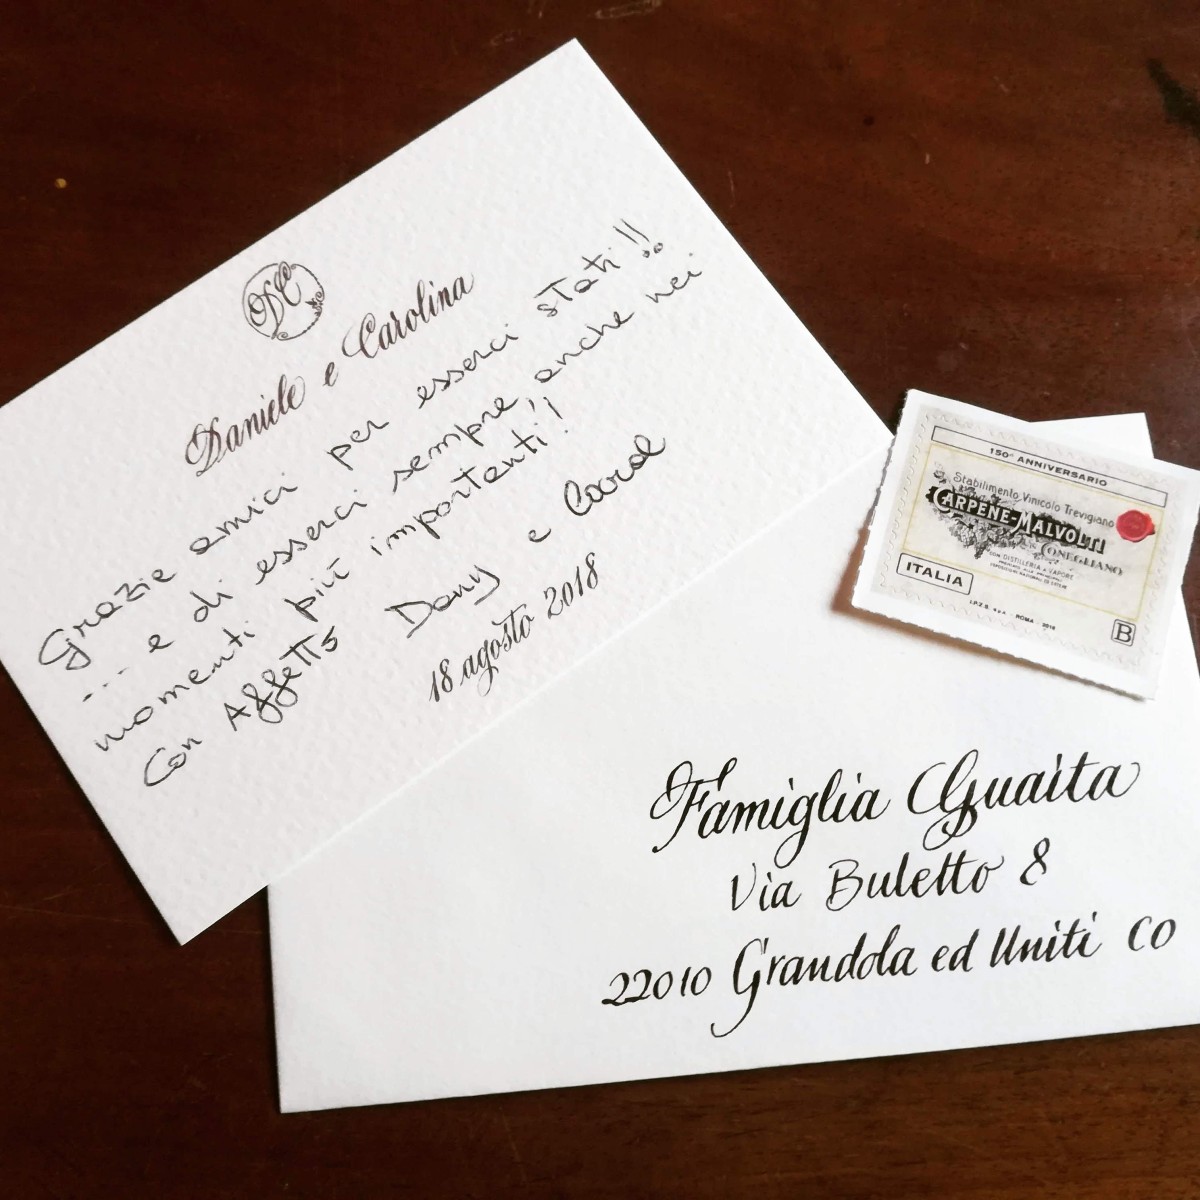 DC
Daniele e Carolina
Grazie amici per esserci stati!!
... e di esserci sempre, anche nei
momenti più importanti!!
Con Affetto Dany e Carol
18 agosto 2018
150° ANNIVERSARIO
Stabilimento Vinicolo Trevigiano
CARPENE-MALVOLTI
CONEGLIANO
CON DISTILLERIA A VAPORE
PREMIATO ALLE PRINCIPALI
ESPOSIZIONI NAZIONALI ED ESTERE
ITALIA
I.P.Z.S. S.p.A. - ROMA - 2018
B
Famiglia Guaita
Via Buletto 8
22010 Grandola ed Uniti CO